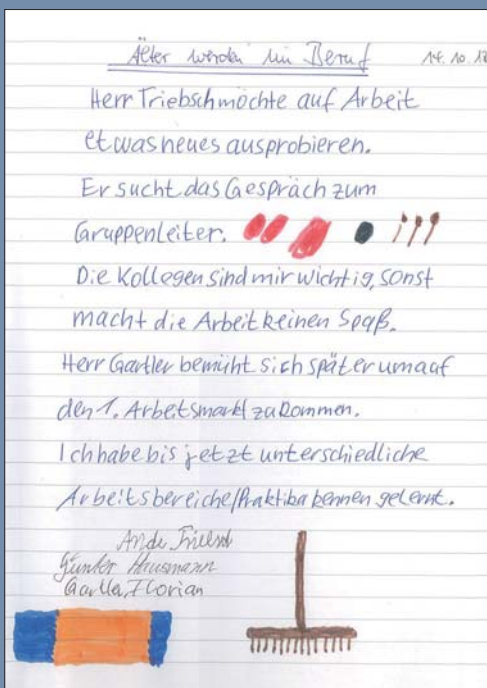 Älter werden im Beruf 14.10.18
Herr Triebsch möchte auf Arbeit
etwas neues ausprobieren.
Er sucht das Gespräch zum
Gruppenleiter.
Die Kollegen sind mir wichtig, sonst
macht die Arbeit keinen Spaß.
Herr Gartler bemüht sich später um auf
den 1. Arbeitsmarkt zu kommen.
Ich habe bis jetzt unterschiedliche
Arbeitsbereiche/Praktika kennen gelernt.
Günter Hausmann
Florian